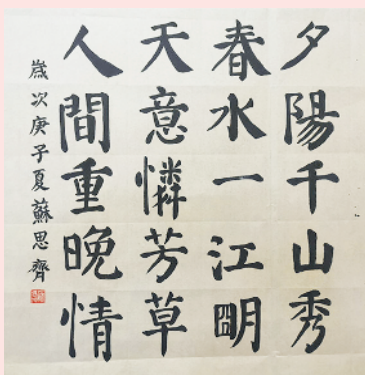 夕陽千山秀
春水一江朙
天意憐芳草
人間重晚情
歲次庚子夏蘇思齊